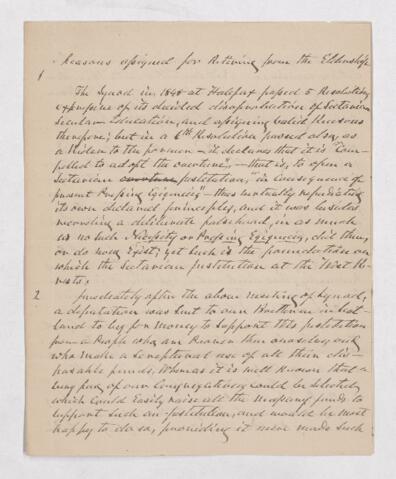 Reasons assigned for Retiring from the Eldership
1
The Synod in 1848 at Halifax passed 5 Resolutions
expressive of its decided disapprobation of Sectarian
Secular Education, and assigning valid Reasons
therefore; but in a 6th Resolution passed also, as
a Ridem to the former – it declares that it is "Com-
pelled to adopt the overture", – that is, to open a
Sectarian Institution, "in Consequence of
present Pressing Exigencies" – thus virtually repudiating
its own declared principles, and it was besides
recording a deliberate falsehood, in as much
as no such Necessity or Pressing Exigencies, did then,
or do now Exist; yet such is the foundation on
which the Sectarian Institution at the West Ri-
ver is;
2
Immediately after the above meeting of Synod,
a deputation was sent to our Brethren in Scot-
land to beg for money to support this Institution
from a People who are known
who make a use of all their dis-
posable funds, Whereas it is well known that a
large part of our Congregations could be
which could Easily raise all the necessary funds to
support such an Institution, and would be most
happy to do so, providing it were made such